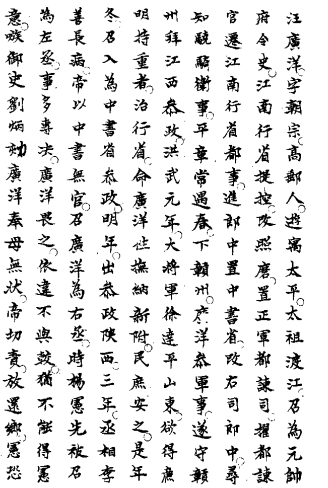 汪廣洋字朝宗高郵人遊寓太平太祖渡江召為元帥
府令史江南行省提控改照磨置正軍都諫司擢都諫
官遷江南行省都事進郎中置中書省改右司郎中尋
知驍騎衛事平章常遇春下贛州廣洋叅軍事遂守贛
州拜江西叅政洪武元年大將軍徐達平山東欲得廉
明持重者治行省命廣洋往撫納新附民庶安之是年
冬召入為中書省叅政明年出叅政陝西三年丞相李
善長病帝以中書無官召廣洋為右丞時楊憲先被召
為左丞事多專決廣洋畏之依違不與較猶不能得憲
意嗾御史劉炳劾廣洋奉母無狀帝切責放還鄉憲恐